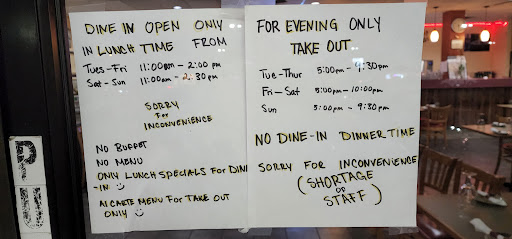 DINE IN OPEN ONLY
IN LUNCH TIME FROM
Tues-Fri 11:00am - 2:00 pm
Sat-Sun 11:00am - 2:30 pm
SORRY
For
INCONVENIENCE
NO BUFFET
NO MENU
ONLY LUNCH SPECIALS FOR DINE
-IN
Al CARTE MENU FOR TAKE OUT
ONLY
FOR EVENING ONLY
TAKE OUT
Tue-Thur 5:00pm - 9:30pm
Fri-Sat 5:00pm - 10:00pm
Sun 5:00pm - 9:30pm
NO DINE-IN DINNER TIME
SORRY FOR INCONVENIENCE
(SHORTAGE
OF
STAFF)
PU